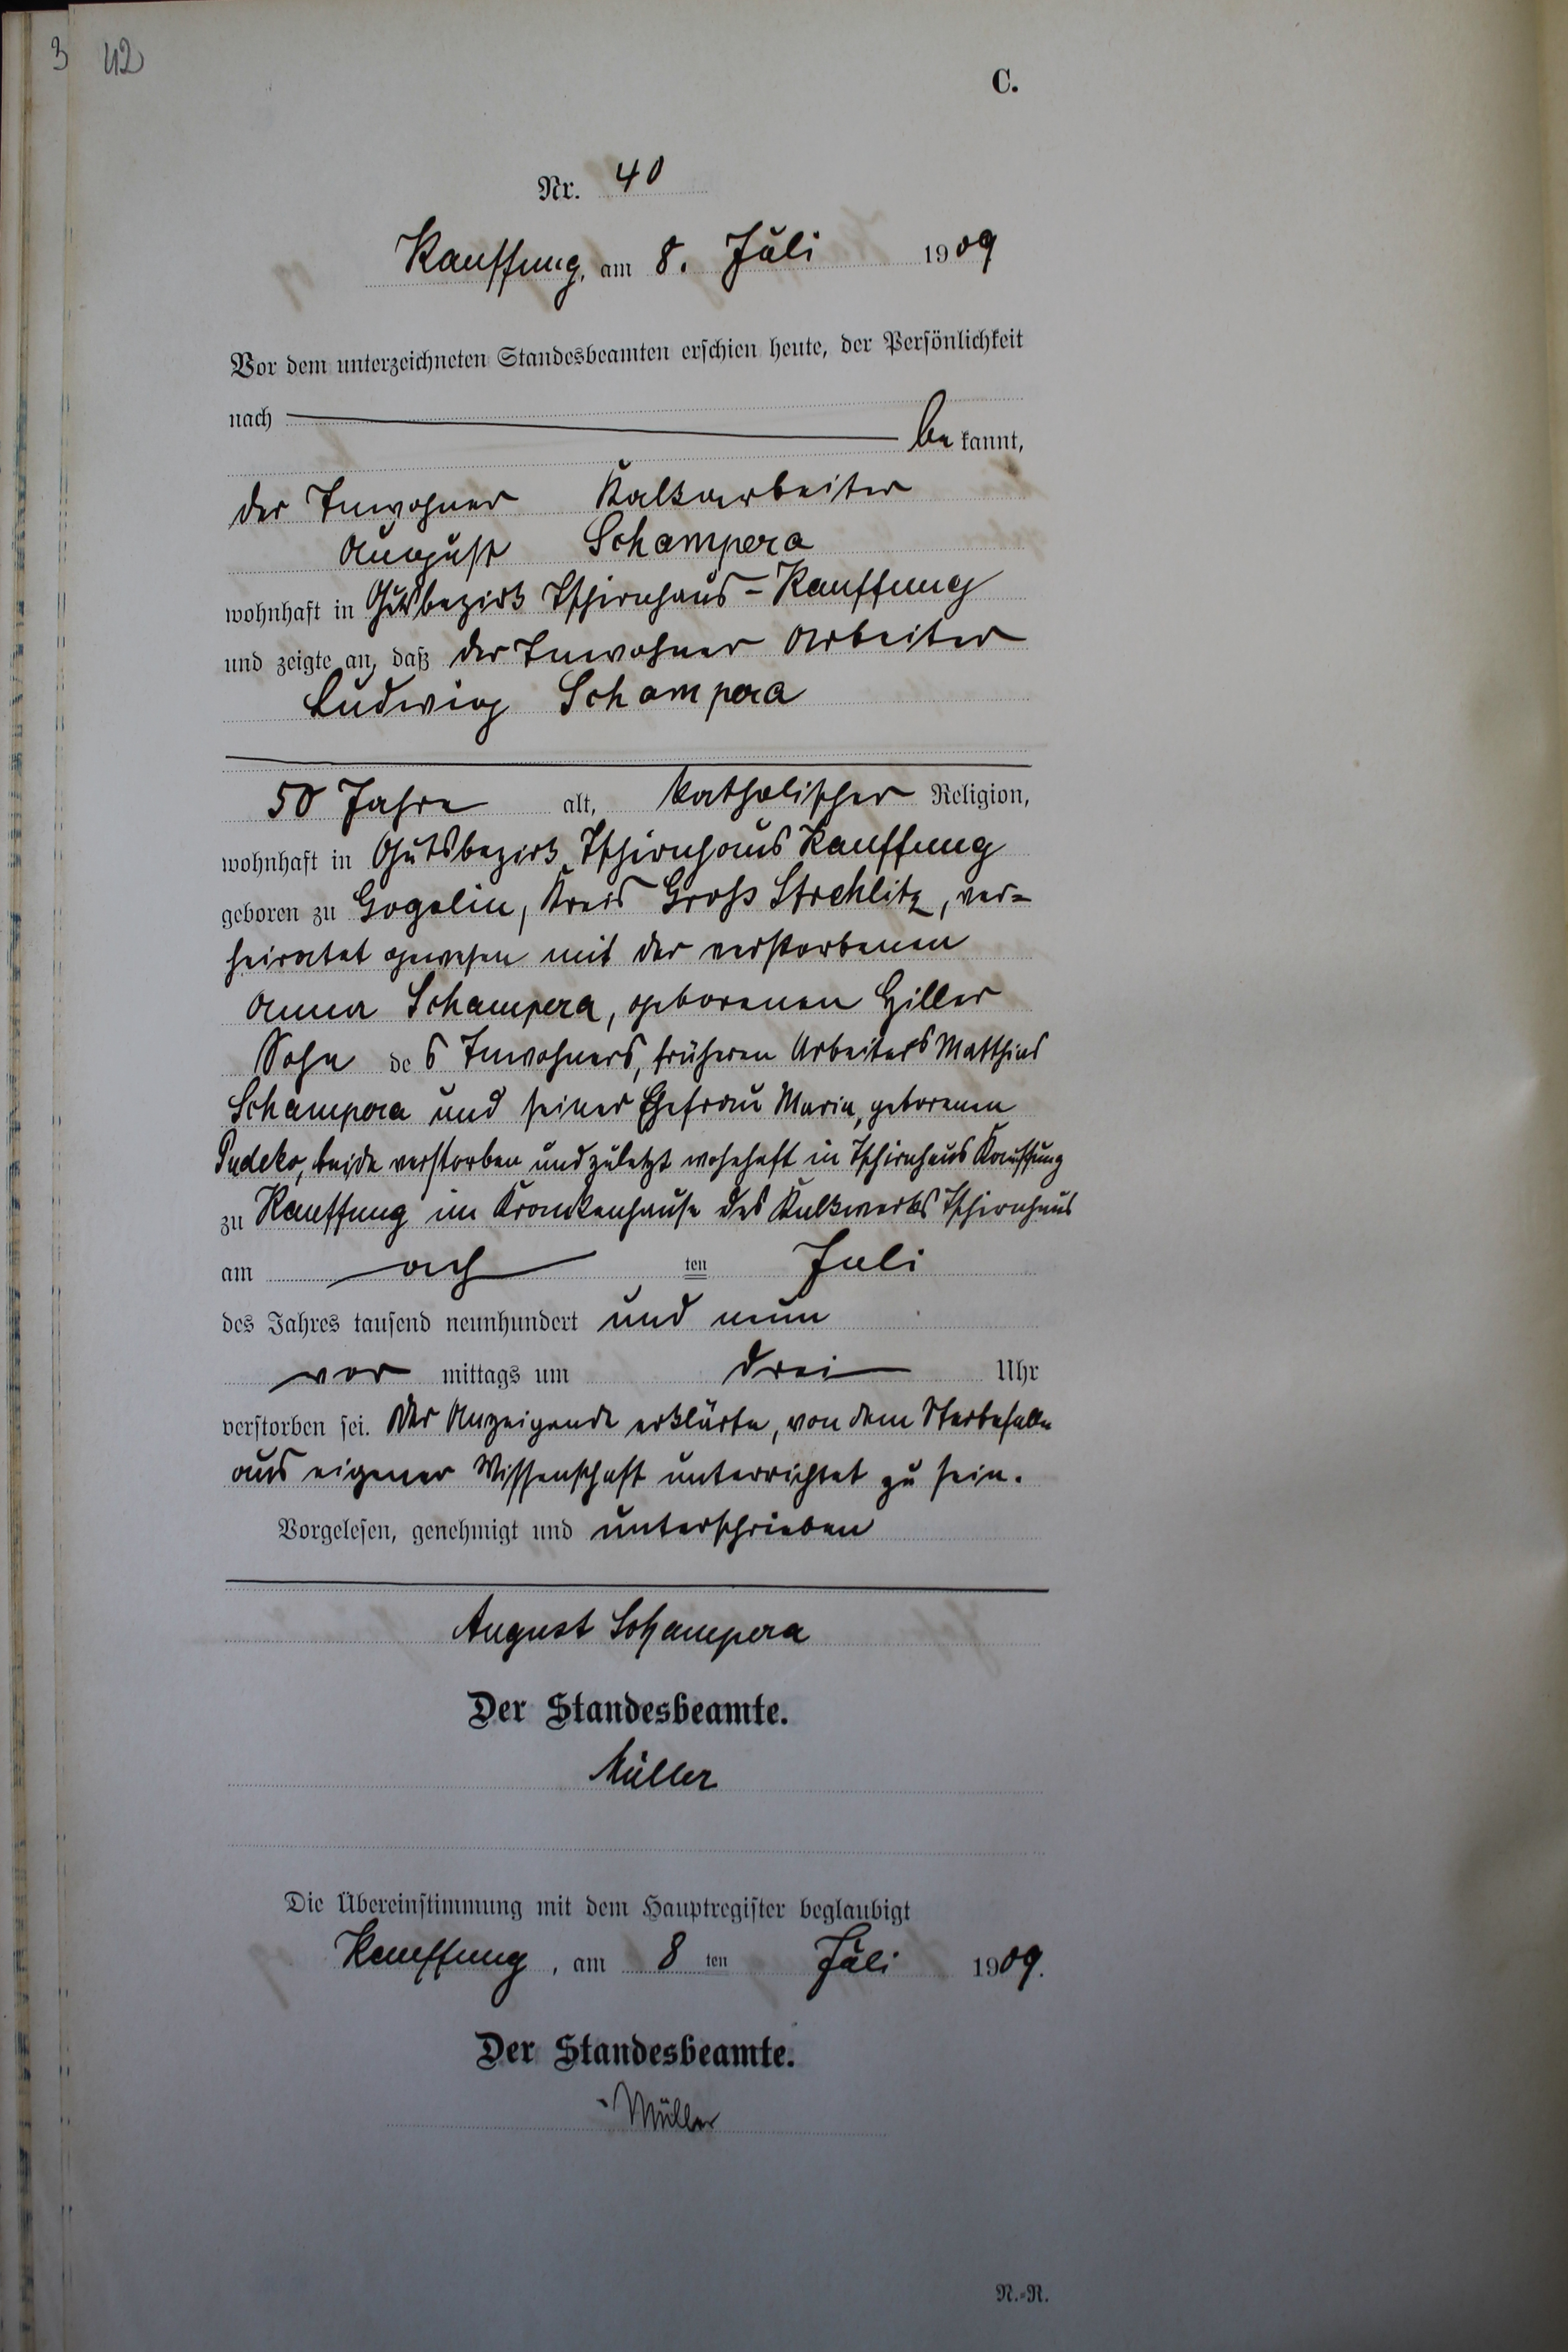 3 42
C.
Nr. 40
Kauffung, am 8. Juli 1909
Vor dem unterzeichneten Standesbeamten erschien heute, der Persönlichkeit
nach
be kannt,
der Inwohner Kalkarbeiter
August Schampera
wohnhaft in Gutsbezirk Tschirnhaus-Kauffung
und zeigte an, daß der Inwohner Arbeiter
Ludwig Schampera
50 Jahre alt, katholischer Religion,
wohnhaft in Gutsbezirk Tschirnhaus Kauffung
geboren zu Gogolin, Kreis Groß Strehlitz, ver=
heiratet gewesen mit der verstorbenen
Anna Schampera, geborenen Hiller
Sohn des Inwohners, früheren Arbeiters Matthias
Schampera und seiner Ehefrau Maria, geborenen
Pudeko, beide verstorben und zuletzt wohnhaft in Tschirnhaus Kauffung
zu Kauffung im Krankenhause des Kalkwerks Tschirnhaus
am ach ten Juli
des Jahres tausend neunhundert und neun
vor mittags um drei Uhr
verstorben sei. Der Anzeigende erklärte, von dem Sterbefalle
aus eigener Wissenschaft unterrichtet zu sein.
Vorgelesen, genehmigt und unterschrieben
August Schampera
Der Standesbeamte.
Müller
Die Übereinstimmung mit dem Hauptregister beglaubigt
Kauffung, am 8 ten Juli 1909.
Der Standesbeamte.
Müller
N.=R.